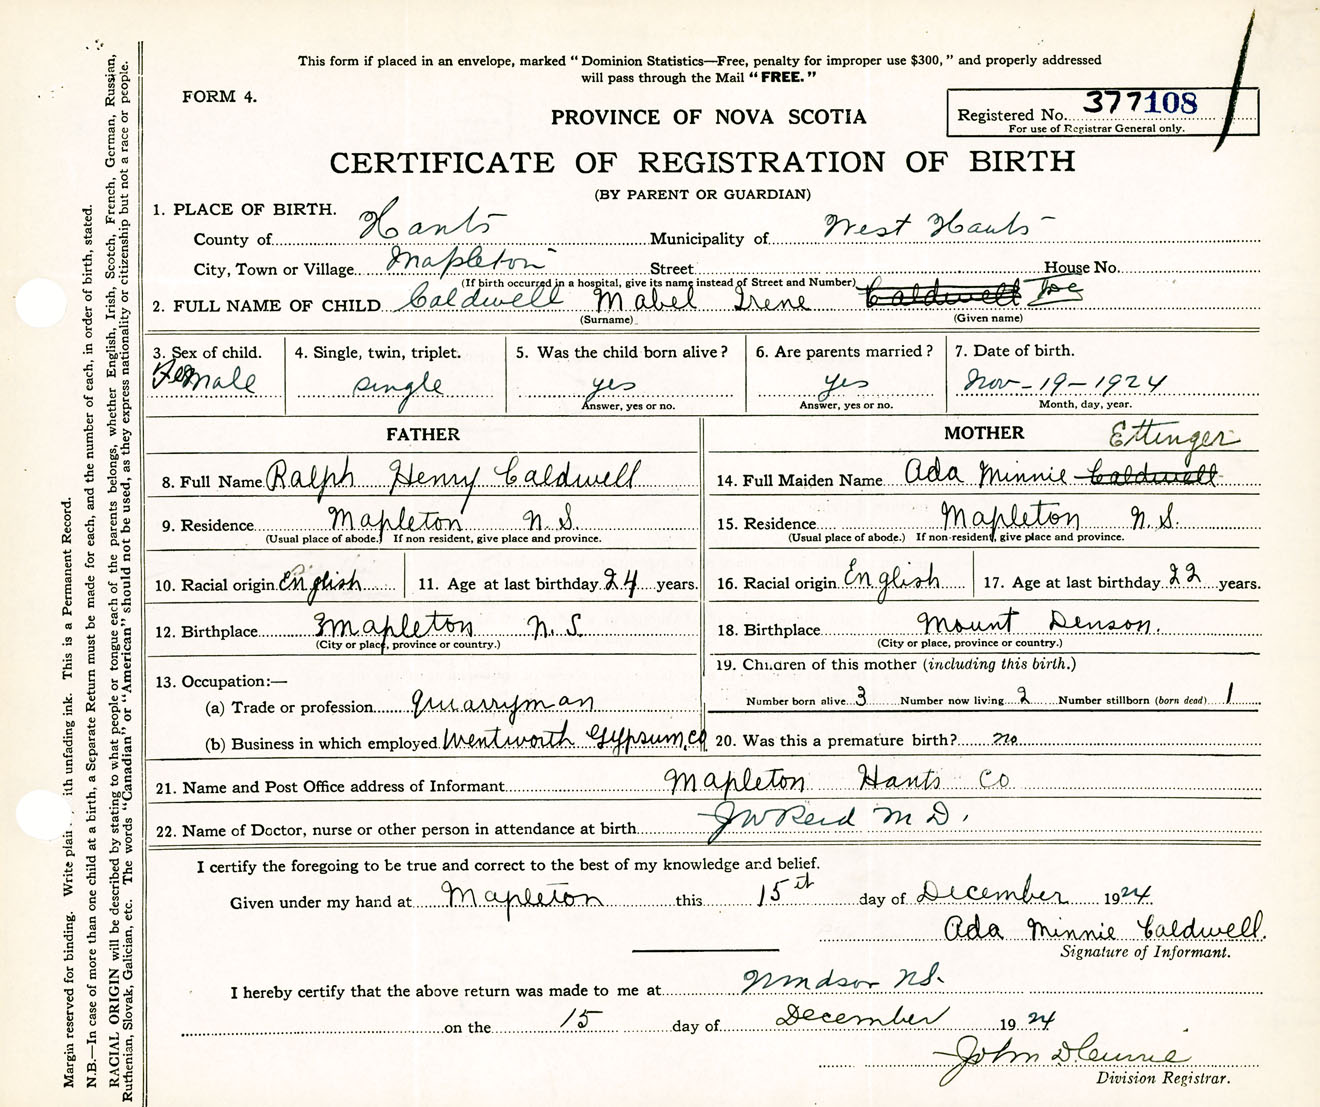 This form if placed in an envelope, marked "Dominion Statistics—Free, penalty for improper use $300," and properly addressed
will pass through the Mail "FREE."
FORM 4.
PROVINCE OF NOVA SCOTIA
Registered No. 377108
For use of Registrar General only.
CERTIFICATE OF REGISTRATION OF BIRTH
(BY PARENT OR GUARDIAN)
1. PLACE OF BIRTH.
County of Hants Municipality of West Hants
City, Town or Village Mapleton Street House No.
(If birth occurred in a hospital, give its name instead of Street and Number)
2. FULL NAME OF CHILD Caldwell Mabel Irene Caldwell
(Surname) (Given name)
3. Sex of child. 4. Single, twin, triplet. 5. Was the child born alive? 6. Are parents married? 7. Date of birth.
FeMale single yes yes Nov-19-1924
Answer, yes or no. Answer, yes or no. Month, day, year.
FATHER
8. Full Name Ralph Henry Caldwell
9. Residence Mapleton N.S.
(Usual place of abode.) If non resident, give place and province.
10. Racial origin English 11. Age at last birthday 24 years.
12. Birthplace Mapleton N.S.
(City or place, province or country.)
13. Occupation:—
(a) Trade or profession Quarryman
(b) Business in which employed Wentworth Gypsum, Co
MOTHER Ettinger
14. Full Maiden Name Ada Minnie Caldwell
15. Residence Mapleton N.S.
(Usual place of abode.) If non-resident, give place and province.
16. Racial origin English 17. Age at last birthday 22 years.
18. Birthplace Mount Denson.
(City or place, province or country.)
19. Children of this mother (including this birth.)
Number born alive 3 Number now living 2 Number stillborn (born dead) 1
20. Was this a premature birth? no
21. Name and Post Office address of Informant Mapleton Hants Co
22. Name of Doctor, nurse or other person in attendance at birth J W Reid M D.
I certify the foregoing to be true and correct to the best of my knowledge and belief.
Given under my hand at Mapleton this 15th day of December 1924.
Ada Minnie Caldwell.
Signature of Informant.
I hereby certify that the above return was made to me at Windsor N.S.
on the 15 day of December 1924
John D
Division Registrar.
Margin reserved for binding. Write plai ith unfading ink. This is a Permanent Record.
N.B.—In case of more than one child at a birth, a Separate Return must be made for each, and the number of each, in order of birth, stated.
RACIAL ORIGIN will be described by stating to what people or tongue each of the parents belongs, whether English, Irish, Scotch, French, German, Russian,
Ruthenian, Slovak, Galician, etc. The words "Canadian" or "American" should not be used, as they express nationality or citizenship but not a race or people.